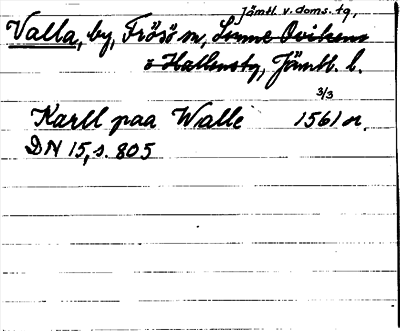 Jämtl. v. doms. tg,
Valla, by, Frösö sn, Sunne Ovikens
o Hallens tg, Jämtl. l.
3/3
Karll paa Walle 1561 or.
DN 15, s. 805